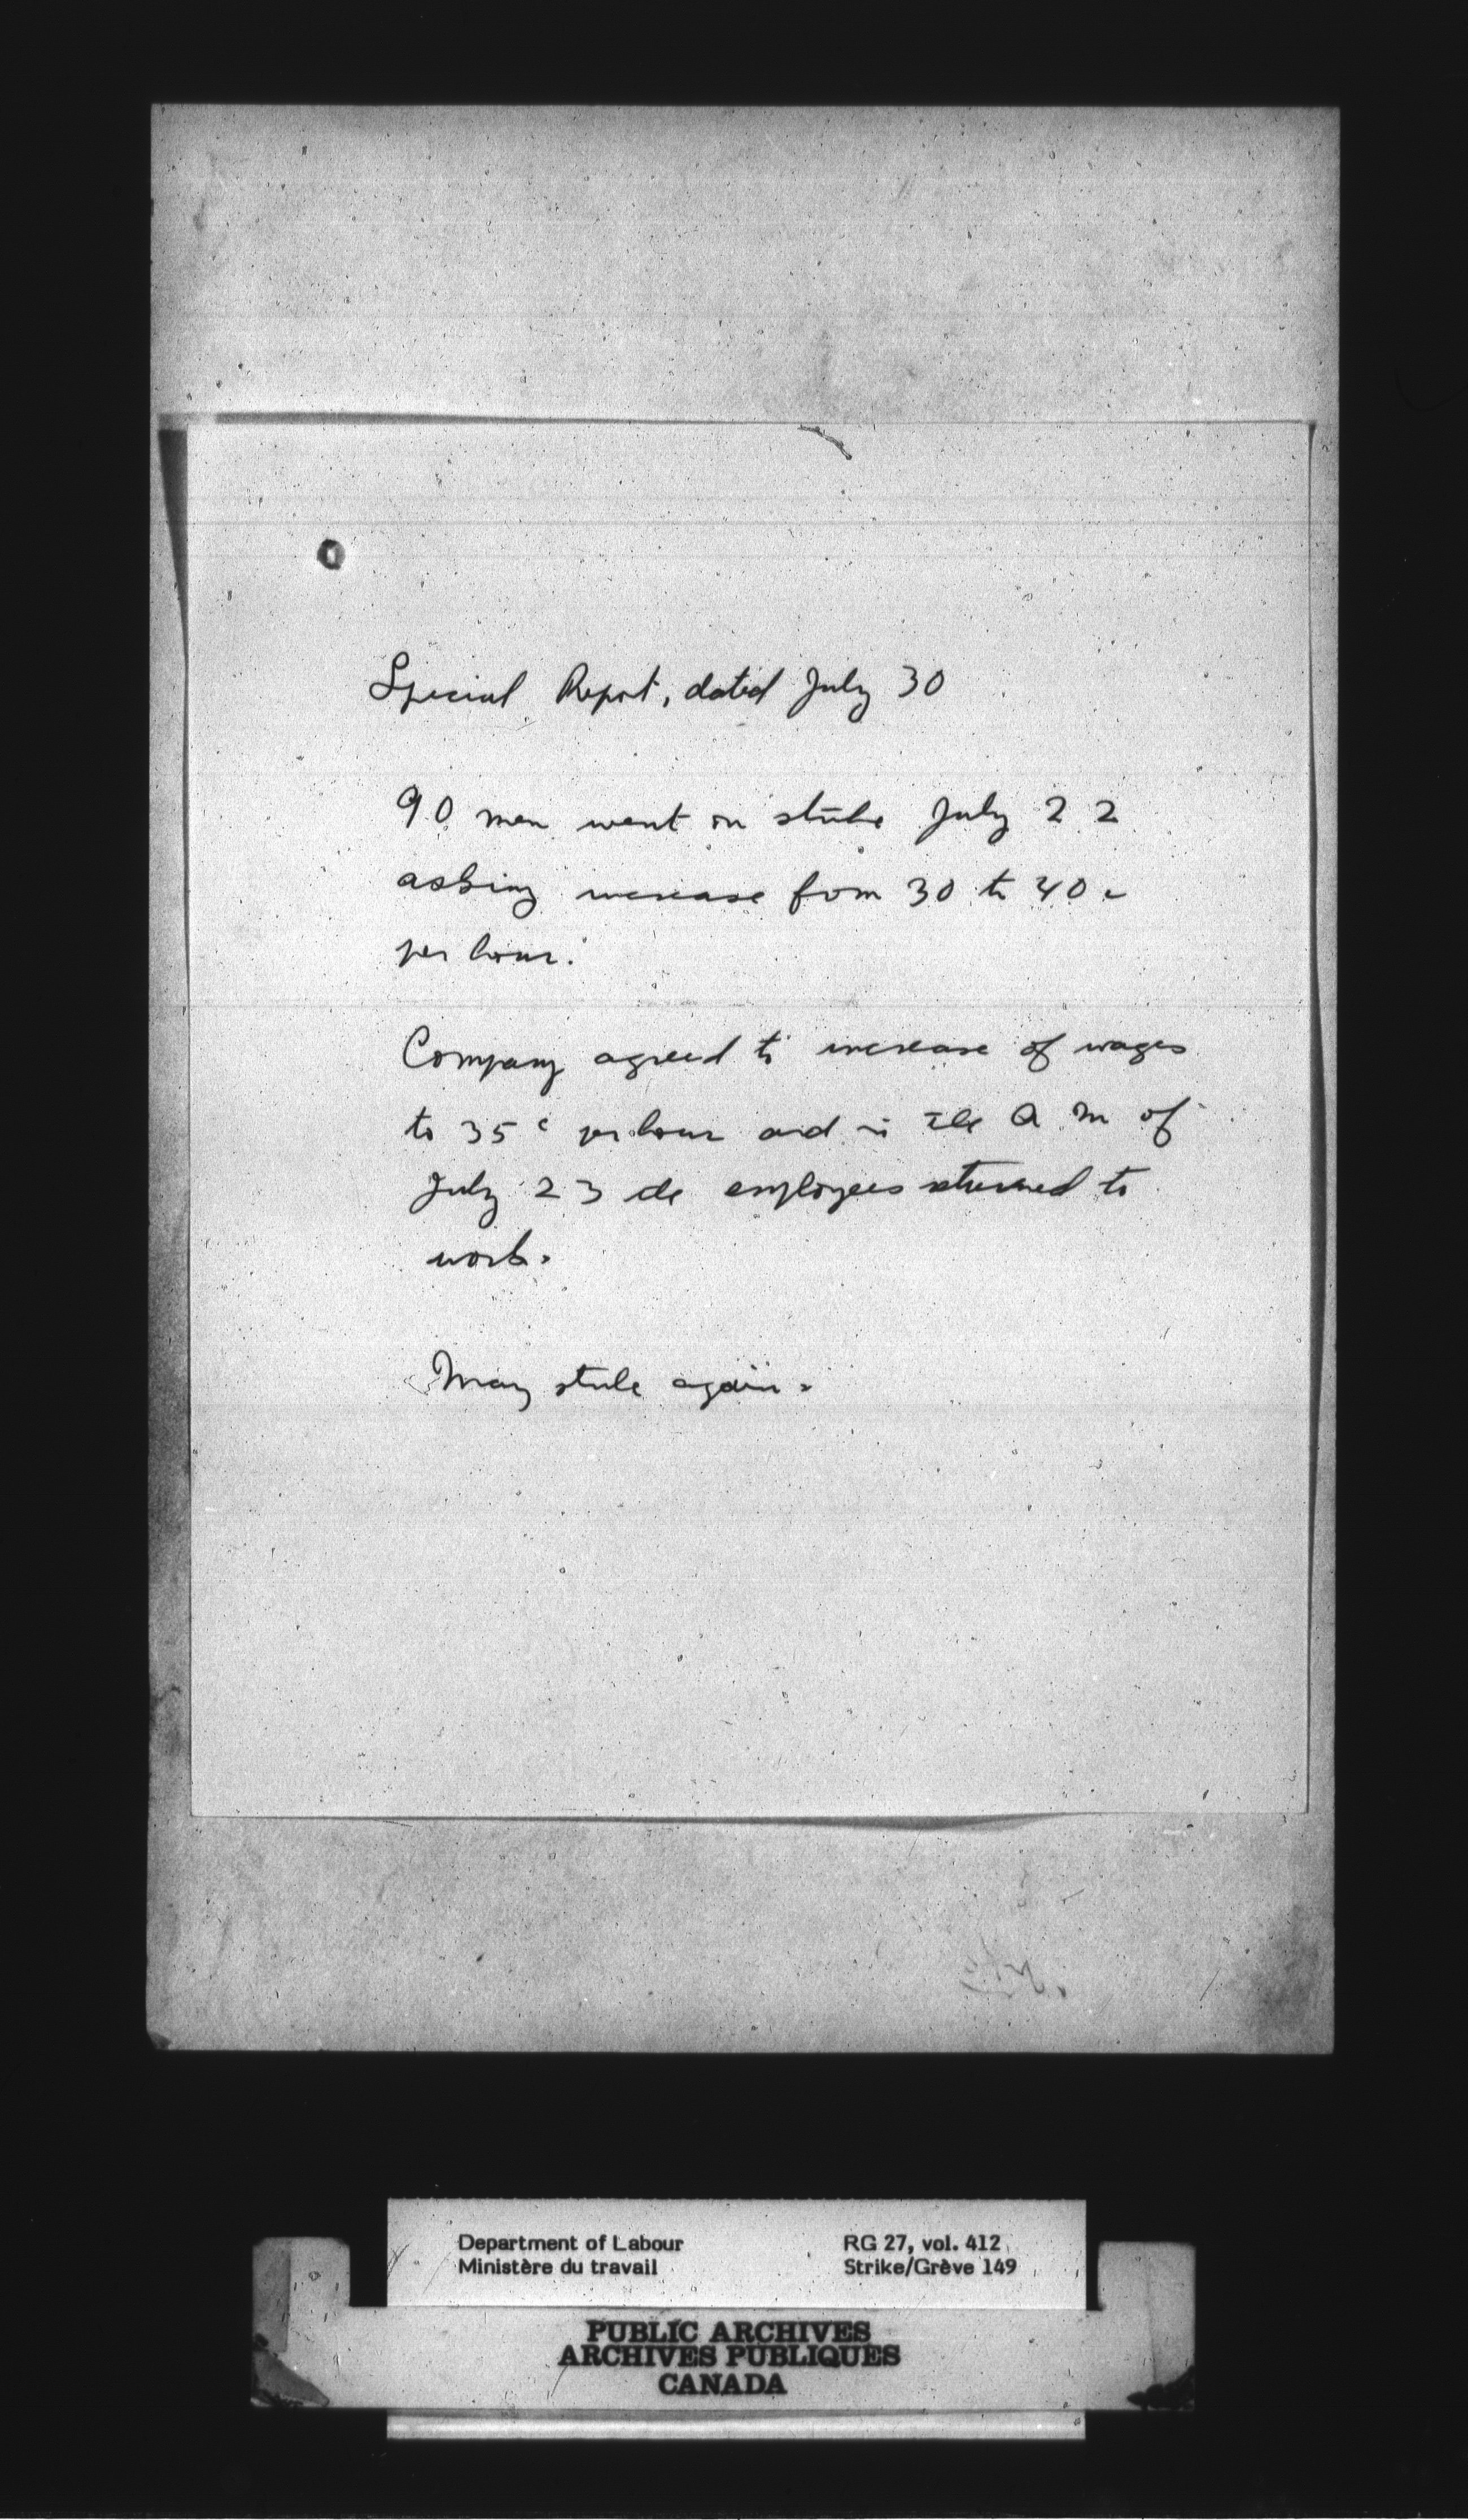 Special Report, dated July 30
90 men went on strike July 22
asking increase from 30 to 40 c
per hour.
Company agreed to increase of wages
to 35 c per hour and in the A M of
July 23 the employees returned to
work.
May strike again.
Department of Labour
Ministère du travail
RG 27, vol. 412
Strike/Grève 149
PUBLIC ARCHIVES
ARCHIVES PUBLIQUES
CANADA